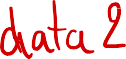 data 2